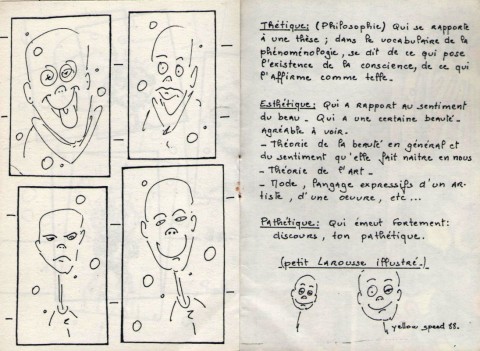 Thétique: (Philosophie) Qui se rapporte
à une thèse ; dans le vocabulaire de la
phénoménologie, se dit de ce qui pose
l'existence de la conscience, de ce qui
l'affirme comme telle.
Esthétique: Qui a rapport au sentiment
du beau - Qui a une certaine beauté -
agréable à voir.
- Théorie de la beauté en général et
du sentiment qu'elle fait naitre en nous
- Théorie de l'Art -
- Mode, langage expressifs d'un ar-
tiste, d'une oeuvre, etc...
Pathétique: Qui émeut fortement:
discours, ton pathétique.
(petit Larousse illustré.)
yellow speed 88.